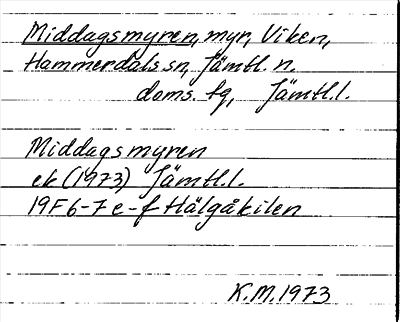 Middagsmyren, myr, Viken,
Hammerdals sn, Jämtl. n.
doms. tg, Jämtl.l.
Middagsmyren
ek (1973) Jämtl.l.
19F6-7e-f Hälgåkilen
K.M. 1973